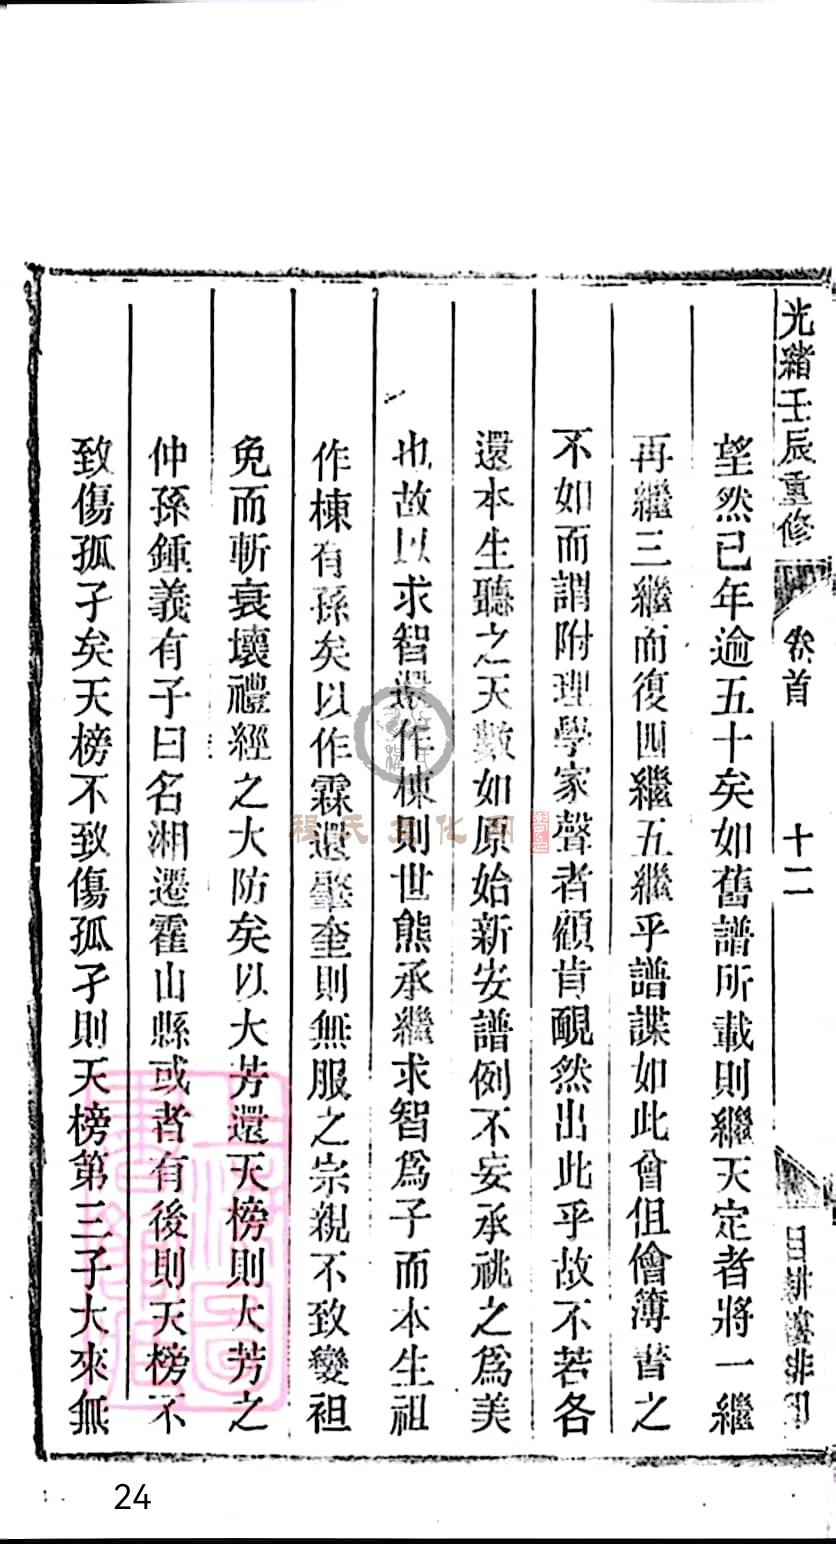 光緒壬辰重修
卷首
十二
目耕樓排印
望然已年逾五十矣如舊譜所載則繼天定者將一繼
再繼三繼而復四繼五繼乎譜諜如此會伹儈簿書之
不如而謂附理學家聲者顧肯靦然出此乎故不若各
還本生聽之天數如原始新安譜例不妄承祧之為美
也故以求智還作棟則世熊承繼求智為子而本生祖
作棟有孫矣以作霖還肇奎則無服之宗親不致變袒
免而斬衰壞禮經之大防矣以大芳還天榜則大芳之
仲孫鍾義有子曰名湘遷霍山縣或者有後則天榜不
致傷孤孑矣天榜不致傷孤孑則天榜第三子大來無
程氏文化网
24